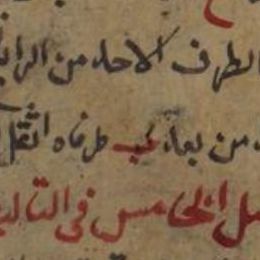 الطرف الاحد من الرابـ
من بعد يجب طرفاه اثقل
ـل الخامس فى التاليـ